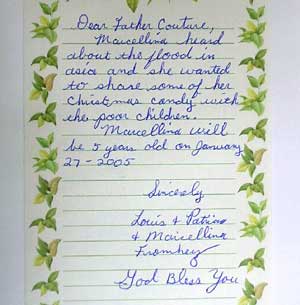 Dear Father Couture,
Marcellina heard
about the flood in
asia and she wanted
to share some of her
Christmas candy with
the poor children.
Marcellina will
be 5 years old on January
27-2005
Sincerely
Louis & Patrina
& Marcellina
Fromhey
God Bless You